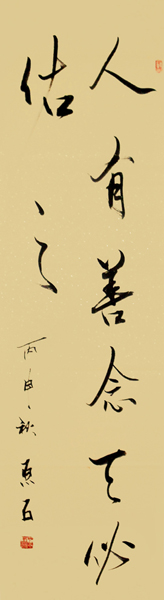 人有善念天必
佑之
丙申秋惠石